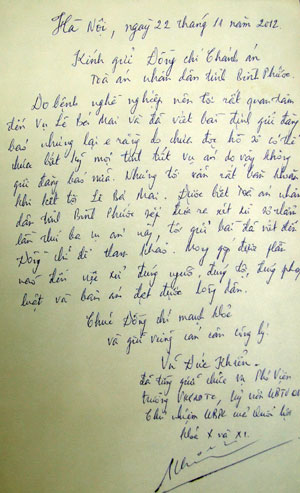 Hà Nội, ngày 22 tháng 11 năm 2012.
Kính gửi Đồng chí Chánh án
Toà án nhân dân tỉnh Bình Phước.
Do bệnh nghề nghiệp nên tôi rất quan tâm
đến vụ Lê Bá Mai và đã viết bài định gửi đăng
báo nhưng lại e rằng do chưa đọc hồ sơ có thể
chưa bắt kỹ mọi tình tiết vụ án do vậy không
gửi đăng báo nữa. Nhưng tôi vẫn rất băn khoăn
khi kết tội Lê Bá Mai. Được biết Toà án nhân
dân tỉnh Bình Phước sắp đưa ra xét xử sơ thẩm
lần thứ ba vụ án này, tôi gửi bài đã viết đến
Đồng chí để tham khảo. Mong góp được phần
nào đến việc xử đúng người, đúng tội, đúng pháp
luật và bản án đạt được lòng dân.
Chúc Đồng chí mạnh khoẻ
và giữ vững cán cân công lý.
Vũ Đức Khiển
đã từng giữ chức vụ Phó Viện
trưởng VKSNDTC, Uỷ viên UBTVQH
Chủ nhiệm UBPL của Quốc hội
khoá X và XI.